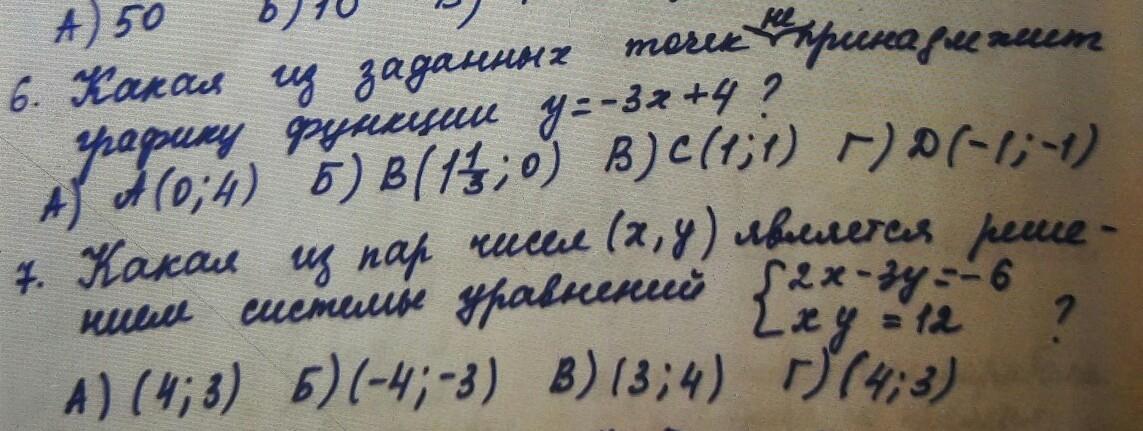 А) 50 Б) 10 В)
6. Какая из заданных точек не принадлежит
графику функции y = -3x + 4 ?
А) A(0;4) Б) B(1 1/3; 0) В) C(1;1) Г) D(-1;-1)
7. Какая из пар чисел (x,y) является реше-
нием системы уравнений { 2x - 3y = - 6
xy = 12 ?
А) (4;3) Б) (-4;-3) В) (3;4) Г) (4;3)